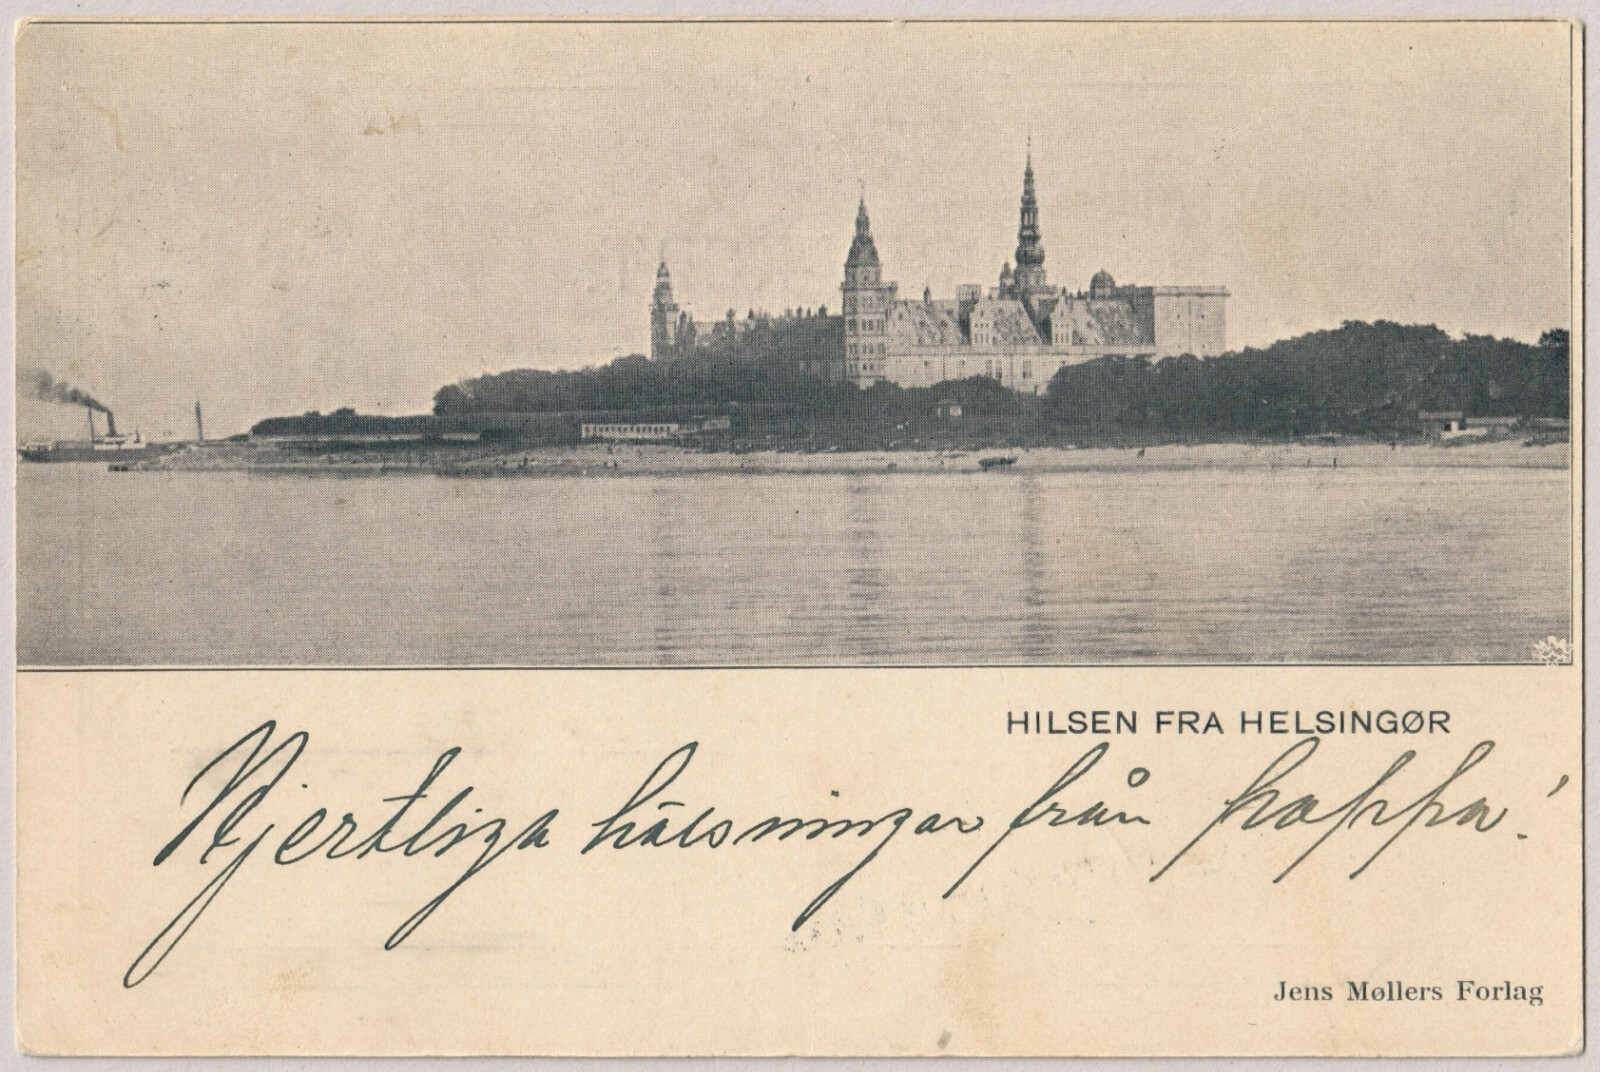 HILSEN FRA HELSINGØR
Hjertliga hälsningar från pappa!
Jens Møllers Forlag